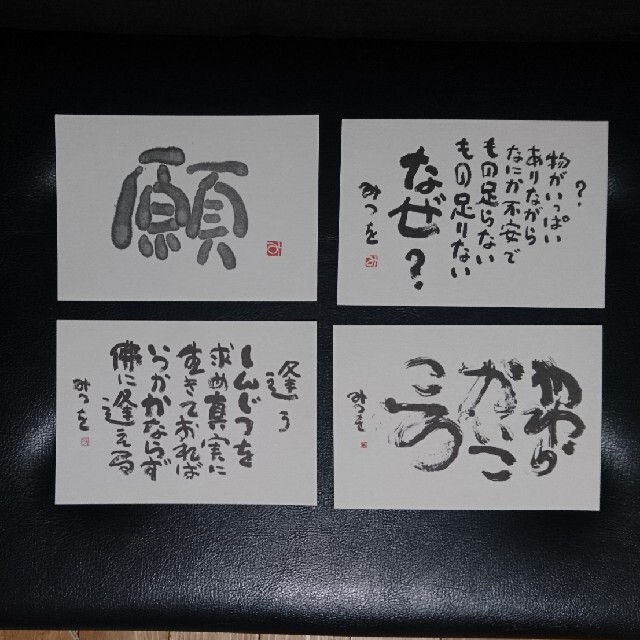 願
み
?
物がいっぱい
ありながら
なにか不安で
もの足らない
もの足りない
なぜ?
みつを
み
逢う
しんじつを
求め真実に
生きておれば
いつかかならず
佛に逢える
みつを
やわら
かいこ
ころ
みつを